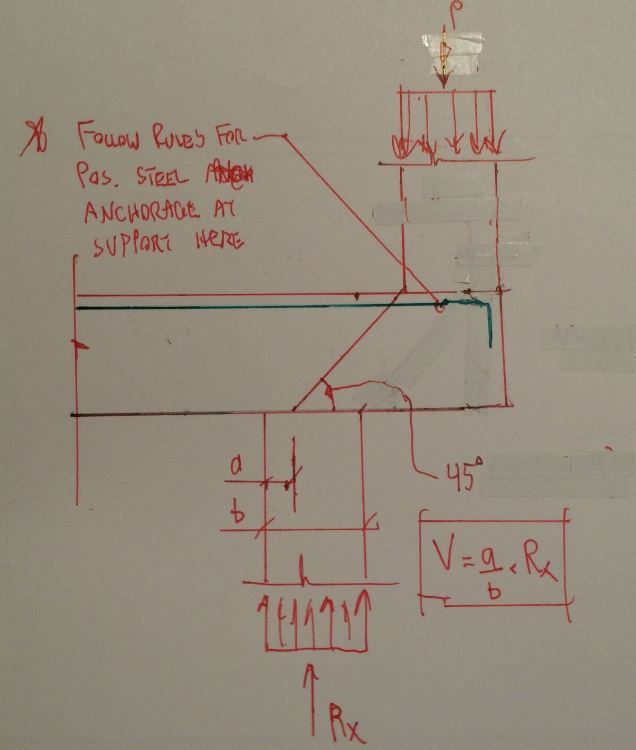 P
FOLLOW RULES FOR
POS. STEEL
ANCHORAGE AT
SUPPORT HERE
a
45°
b
V = a/b · Rx
Rx